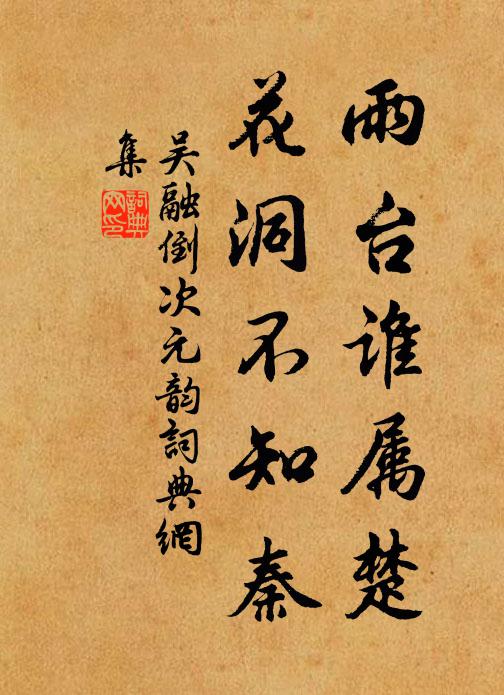 雨台谁属楚
花洞不知秦
吴融倒次元韵詞典網
集
詞典网印